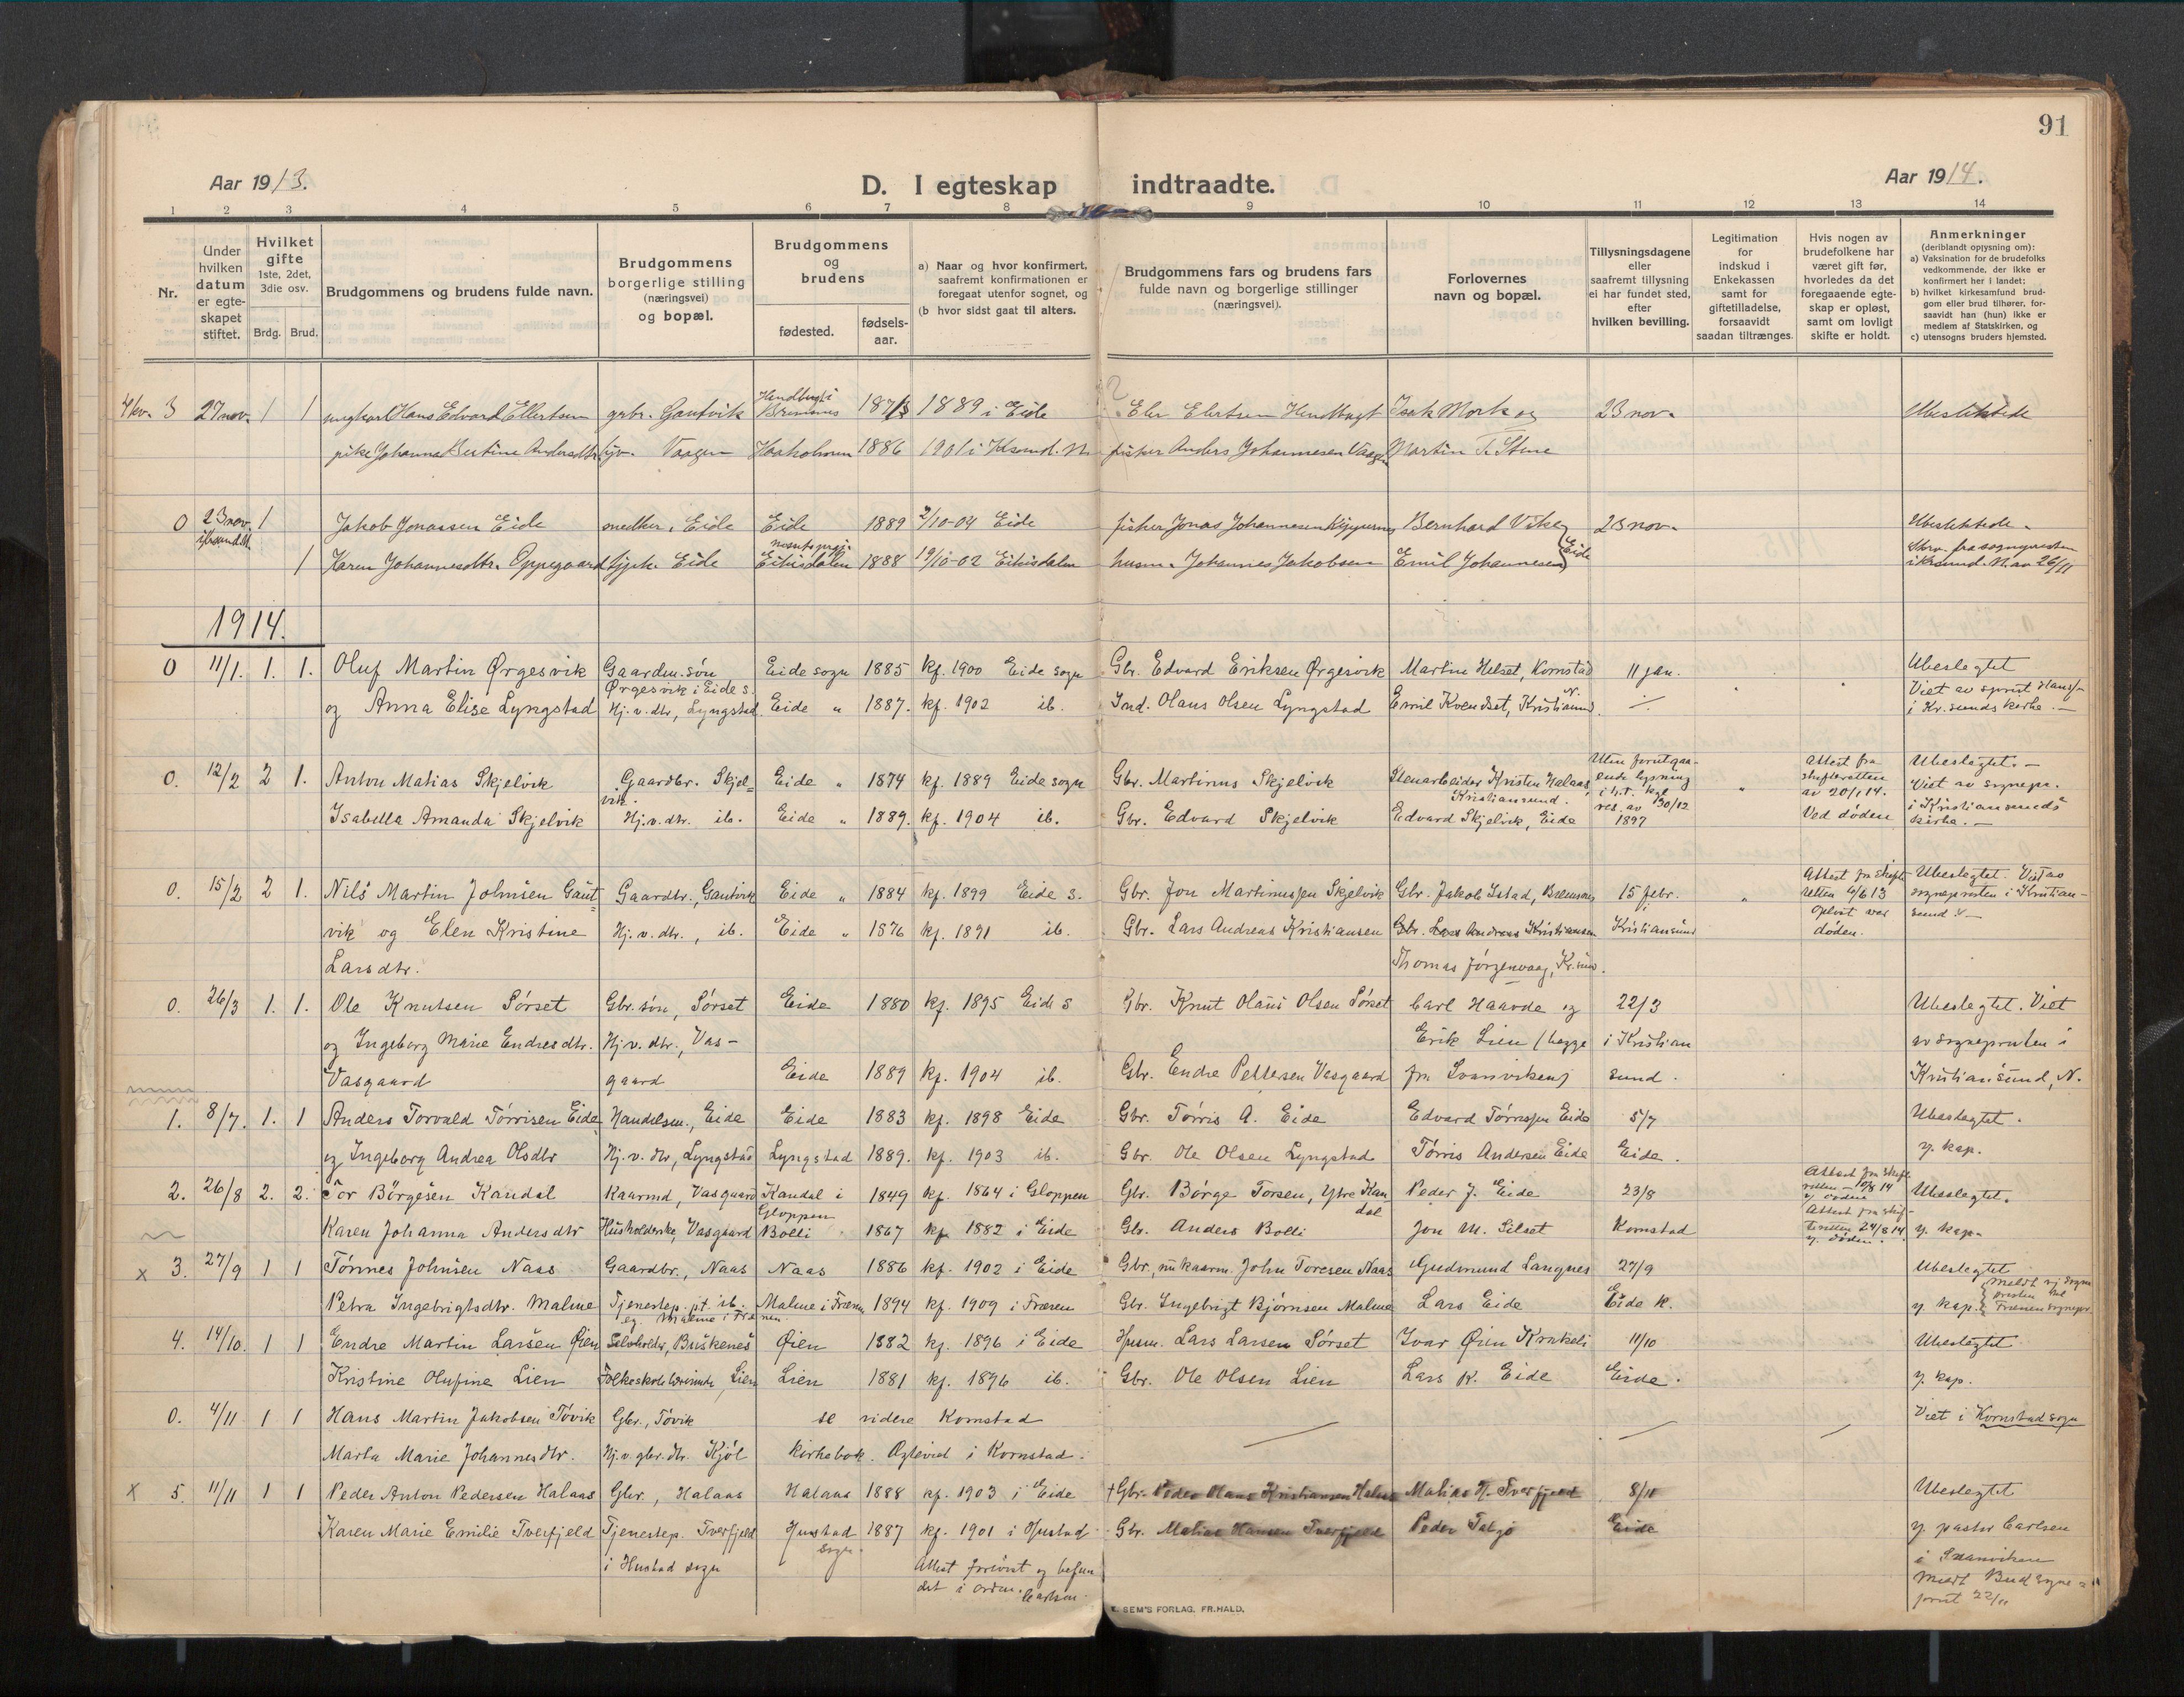 91
Aar 1913.
D. I egteskap indtraadte.
Aar 1914.
1 2 3 4 5 6 7 8 9 10 11 12 13 14
Nr.
Under hvilken datum er egteskapet stiftet.
Hvilket gifte 1ste, 2det, 3die osv.
Brdg. Brud.
Brudgommens og brudens fulde navn.
Brudgommens borgerlige stilling (næringsvei) og bopæl.
Brudgommens og brudens
fødested.
fødsels-aar.
a) Naar og hvor konfirmert, saafremt konfirmationen er foregaat utenfor sognet, og
(b hvor sidst gaat til alters.
Brudgommens fars og brudens fars fulde navn og borgerlige stillinger (næringsvei).
Forlovernes navn og bopæl.
Tillysningsdagene eller saafremt tillysning ei har fundet sted, efter hvilken bevilling.
Legitimation for indskud i Enkekassen samt for giftetilladelse, forsaavidt saadan tiltrænges.
Hvis nogen av brudefolkene har været gift før, hvorledes da det foregaaende egteskap er opløst, samt om lovligt skifte er holdt.
Anmerkninger (deriblandt opjysning om):
a) Vaksination for de brudefolks vedkommende, der ikke er konfirmert her i landet;
b) hvilket kirkesamfund brudgom eller brud tilhører, forsaavidt han (hun) ikke er medlem af Statskirken, og
c) utensogns bruders hjemsted.
4 kv. 3 27 nov. 1 1 ungkarl Hans Edvard Ellertsen grbr. Gautvik Bremnes 1889 i Eide Elertsen Isak Mork og 23 nov. Ubeslektede
pike Johanna Bertine Andersdtr. Vaagen Haaholmen 1886 1901 i Ksund. N. fisker Anders Johannesen Vaagen Martin T. Stene
0 23 nov. 1 Jakob Jonassen Eide snedker, Eide Eide 1889 2/10-04 Eide fisker Jonas Johannesen Bernhard Vike 23 nov. Ubeslektede.
1 Karen Johannesdtr. Oppegaard Eide Eikisdalen 1888 19/10-02 Eikisdalen husm. Johannes Jakobsen Emil Johannesen Eide Skrv. fra sognepresten i Krsund. N. av 26/11
1914.
0 11/1. 1. 1. Oluf Martin Ørgesvik Gaardm. søn Ørgesvik i Eide s. Eide sogn 1885 kf. 1900 Eide sogn Gbr. Edvard Eriksen Ørgesvik Martin Helset, Kornstad 11 jan. Ubeslegtet
og Anna Elise Lyngstad Hj. v. dtr, Lyngstad. Eide " 1887. kf. 1902 ib. Ind. Olaus Olsen Lyngstad Emil Kvendset, Kristiansund N. Viet av sprst Hanss/- i Kr.sunds kirke.
0. 12/2 2 1. Anton Matias Skjelvik Gaardbr. Skjelvik. Eide " 1874 kf. 1889 Eide sogn Gbr. Martinus Skjelvik Stenarbeider Kristen Halaas, Kristiansund. Uten forutgaaende lysning i h.t. kgl. res. av 30/12 1897 " Attest fra skifteretten av 20/1 14. Ved døden Ubeslegtet. Viet av sognepr. i Kristiansunds kirke.
Isabella Amanda Skjelvik Hj. v. dtr. ib. Eide " 1889. kf. 1904 ib. Gbr. Edvard Skjelvik Edvard Skjelvik, Eide
0. 15/2 2 1. Nils Martin Johnsen Gaut= Gaardbr., Gautvik Eide " 1884 kf. 1899 Eide s. Gbr. Jon Martinussen Skjelvik Gbr. Jakob Istad, Bremsnes 15 febr. " Attest fra skifteretten 4/6 13 Ubeslegtet. Viet av
vik og Elen Kristine Hj. v. dtr., ib. Eide " 1876 kf. 1891 ib. Gbr. Lars Andreas Kristiansen Gbr. Lars Andreas Kristiansen i Kristiansund Opløst ved døden. sognepresten i Kristiansund.
Larsdtr. Thomas Jørgenvaag, Kr.sund.
0. 26/3 1. 1. Ole Knutsen Sørset Gbr. søn, Sørset Eide 1880 kf. 1895 Eide s Gbr. Knut Olaus Olsen Sørset Carl Haavde og 22/3 Ubeslegtet. Viet
og Ingeborg Marie Endresdtr. Hj. v. dtr., Vas- Erik Lien (begge i Kristian av sognepresten i
Vasgaard gaard Eide 1889 kf. 1904 ib. Gbr. Endre Pettersen Vasgaard fra Svanviken) sund. Kristiansund, N.
1. 8/7. 1. 1 Anders Torvald Tørrisen Eide Handelsm., Eide Eide 1883 kf. 1898 Eide Gbr. Tørris A. Eide Edvard Tørrissen Eide 5/7 Ubeslegtet.
og Ingeborg Andrea Olsdtr Hj. v. dtr, Lyngstad Lyngstad 1889. kf. 1903 ib. Gbr. Ole Olsen Lyngstad Tørris Andersen Eide Eide. y. kap.
2. 26/8 2. 2. Tor Børgesen Kandal Kaarmd, Vasgaard Kandal i Gloppen 1849 kf. 1864 i Gloppen Gbr. Børge Torsen, Ytre Kandal Peder J. Eide 23/8 Attest fra skifteretten 19/8 14 v. døden Ubeslegtet.
Karen Johanna Andersdtr Husholderske, Vasgaard Bolli 1867 kf. 1882 i Eide Gbr. Anders Bolli Jon M. Silset Kornstad Attest fra skifteretten 24/8 14. v. døden. y. kap.
x 3. 27/9 1 1 Tønnes Johnsen Naas Gaardbr., Naas Naas 1886 kf. 1902 i Eide Gbr., nu kaarm. John Toresen Naas Gudmund Langnes 27/9 Ubeslegtet
Petra Ingebrigtsdtr. Malme Tjenestep. pt. ib. eg. Malme i Frænen. Malme i Fræn 1894 kf. 1909 i Frænen Gbr. Ingebrigt Bjørnsen Malme Lars Eide Eide k. y. kap. Meldt vj. sognepresten til Frænen sognepr.
4. 14/10. 1 1 Endre Martin Larsen Øien Selvholdr, Buskenes Øien 1882 kf. 1896 i Eide Husm. Lars Larsen Sørset Ivar Øien Krakeli 11/10 Ubeslegtet
Kristine Olufine Lien Folkeskolelærerinde, Lien Lien 1881 kf. 1896 ib. Gbr. Ole Olsen Lien Lars K. Eide Eide. y. kap.
0. 4/11 1 1 Hans Martin Jakobsen Tøvik Gbr., Tøvik se videre Kornstad Viet i Kornstad sogn
Marta Marie Johannesdtr. Hj. v. gbr. dtr. Kjøl kirkebok. Ogleviet i Kornstad.
x 5. 11/11 1 1 Peder Anton Pedersen Halaas Gbr, Halaas Halaas 1888 kf. 1903 i Eide + Gbr. Peder Olaus Kristiansen Halaas Matias H. Tverfjeld 8/11 Ubeslegtet
Karen Marie Emilie Tverfjeld Tjenestep. Tverfjeld Hustad sogn. 1887 kf. 1901 i Hustad Gbr. Matias Hansen Tverfjeld Peder Talgø Eide y. pastor Carlsen
i Hustad sogn Attest forevist og befundet i orden. Carlsen. i Svanviken
Meldt Bud sogneprest 22/11
E. SEM'S FORLAG. FR.HALD.